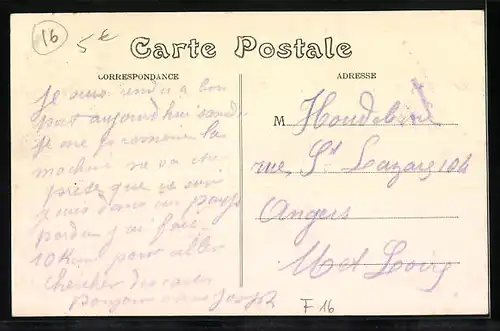 16
5 €
Carte Postale
CORRESPONDANCE
ADRESSE
je suis rendu a bon
port aujourd'hui
je me promene la
machine ne va
que ce soir
je suis dans un pays
perdu j'ai fait
10 Km pour aller
chercher des cartes
bonjour Joseph
M Houdebine
rue, St Lazare 104
Angers
M et Loire
F 16